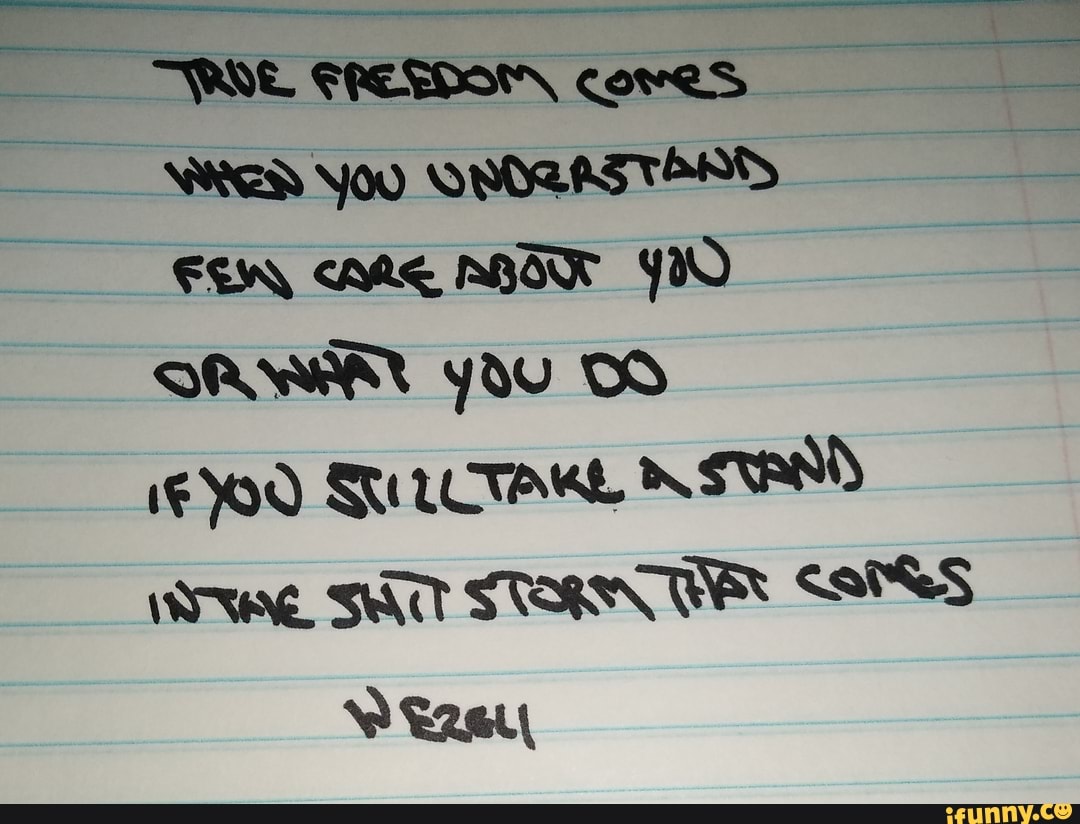 TRUE FREEDOM COMES
WHEN YOU UNDERSTAND
FEW CARE ABOUT YOU
OR WHAT YOU DO
IF YOU STILL TAKE A STAND
IN THE SHIT STORM THAT COMES
ifunny.co